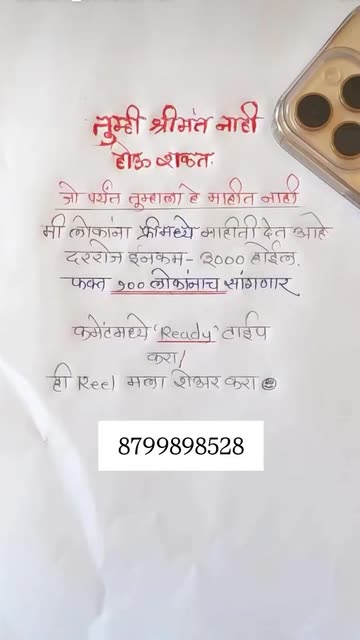 तुम्ही श्रीमंत नाही
होऊ शकत.
जो पर्यंत तुम्हाला हे माहीत नाही
मी लोकांना फ्रीमध्ये माहीती देत आहे
दररोज ईनकम- ३००० होईल.
फक्त १०० लोकांनाच सांगणार
कमेंटमध्ये 'Ready' टाईप
करा/
ही Reel मला शेअर करा
8799898528